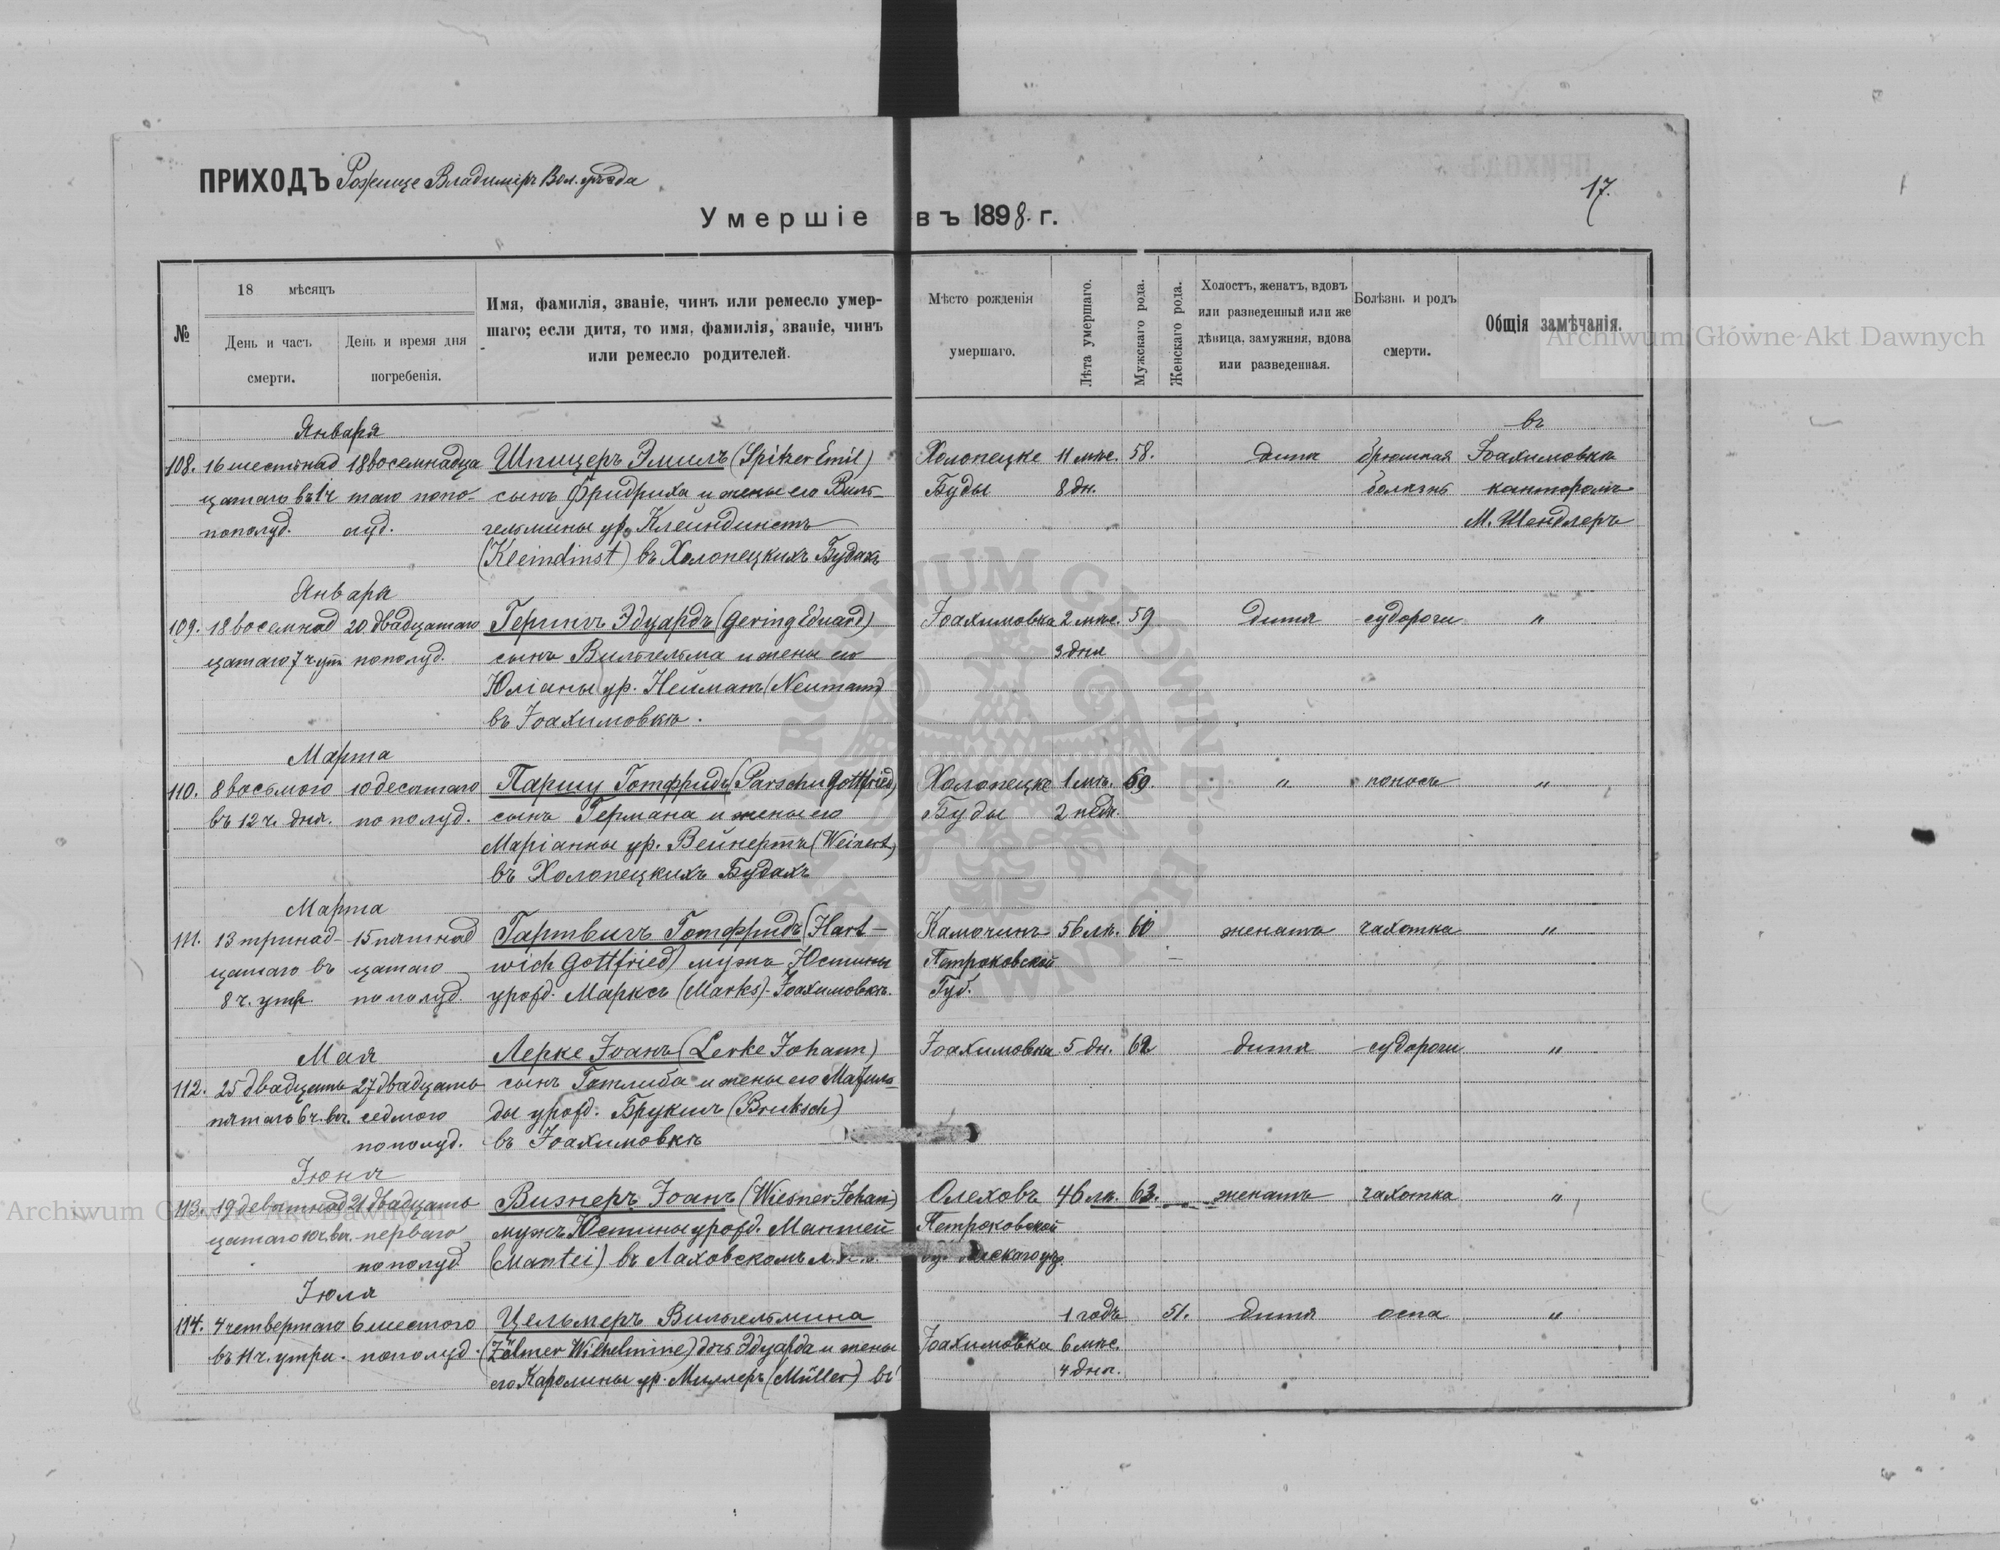 ПРИХОДЪ Рожище Владимiръ Вол. уѣзда
17.
Умершіе въ 1898 г.
№
18 мѣсяцъ
День и часъ смерти.
День и время дня погребенія.
Имя, фамилія, званіе, чинъ или ремесло умер-
шаго; если дитя, то имя, фамилія, званіе, чинъ
или ремесло родителей.
Мѣсто рожденія умершаго.
Лѣта умершаго.
Мужскаго рода.
Женскаго рода.
Холостъ, женатъ, вдовъ
или разведенный или же
дѣвица, замужняя, вдова
или разведенная.
Болѣзнь и родъ смерти.
Общія замѣчанія.
Archiwum Główne Akt Dawnych
Января въ
108. 16 шестнад 18 восемнадца Шпицеръ Эмиль (Spiker Emil) Холопецке 11 мѣс. 58. дитя брюшная Іоахимовка
цатаго въ 1 ч таго попо- сынъ Фридриха и жены его Виль- Буды 8 дн. болѣзнь канторомъ
пополуд. луд. гельмины ур. Клейндинстъ М. Шендлеръ
(Kleindinst) въ Холопецкихъ Будахъ
Января
109. 18 восемнад 20 двадцатаго Герингъ Эдуардъ (Gering Eduard) Іоахимовка 2 мѣс. 59 дитя судороги "
цатаго 7 ч ут пополуд. сынъ Вильгельма и жены его 3 дня
Юліаны ур. Нейманъ (Neumann)
въ Іоахимовкѣ.
Марта
110. 8 восьмого 10 десятаго Паршу Готфридъ (Parschu Gottfried) Холопецке 1 мѣ. 69. " поносъ "
въ 12 ч. дня. пополуд. сынъ Германа и жены его Буды 2 нед.
Маріанны ур. Вейнертъ (Weinert)
въ Холопецкихъ Будахъ
Марта
111. 13 тринад- 15 пятнад Гартвигъ Готфридъ (Hart- Камочинъ 56 лѣ. 60 женатъ чахотка "
цатаго въ цатаго wich Gottfried) мужъ Юстины Петроковской
8 ч. утр. пополуд. урожд. Марксъ (Marks) Іоахимовкѣ. Губ.
Мая Лерке Іоанъ (Lerke Johann) Іоахимовка 5 дн. 62 дитя судороги "
112. 25 двадцать 27 двадцать сынъ Готлиба и жены его Матиль-
пятаго 6 ч. веч. седмого ды урожд. Брукшъ (Bruksch)
пополуд. въ Іоахимовкѣ
Іюня
113. 19 девятнад 21 двадцать Визнеръ Іоанъ (Wiesner Johan) Олеховъ 46 лѣ. 63. женатъ чахотка "
цатаго 10 ч. веч. перваго мужъ Юстины урожд. Мантей Петроковской
пополуд (Mantei) въ Лаховскомъ
Іюля
114. 4 четвертаго 6 шестого Цельмеръ Вильгельмина 1 годъ 51. дитя оспа "
въ 11 ч. утра. пополуд. (Zölmer Wilhelmine) дочь Эдуарда и жены Іоахимовка 6 мѣс.
его Каролины ур. Миллеръ (Müller) въ 4 дня.
Archiwum Główne Akt Dawnych